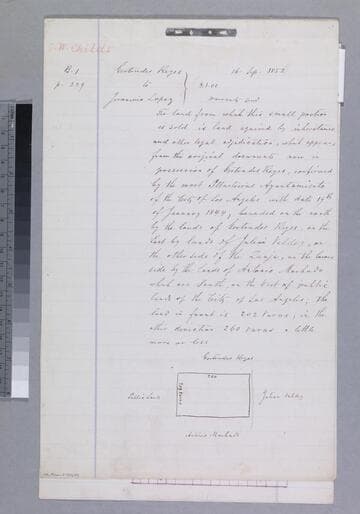 O.W. Childs
B.1 Gertrudes Reyes 16 Sep. 1852
p. 229 to $1.00
Joaquina Lopez
The land from what this small portion
is sold is land aquired by inheritance
and other legal adjudication, what appear
from the original documents now in
possession of Gertrudes Reyes, confirmed
by the most Illustrious Ayuntamiento
of the City of Los Angeles with date 19th
of January 1844, bounded on the north
by the lands of Gertrudes Reyes, on the
East by lands of Julian Valdez, on
the other side of the Zanja, on the
side by the lands of Antonio Machado
what are South, on the West of public
lands of the City of Los Angeles, the
land in front is 202 varas, in the
other direction 260 varas a little
more or less
Gertrudes Reyes
260
Public Land
Julian Valdez
Antonio Machado